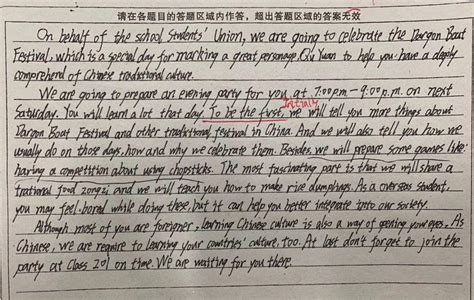 请在各题目的答题区域内作答，超出答题区域的答案无效
On behalf of the school Students' Union, we are going to celebrate the Dargon Boat
Festival, which is a special day for marking a great personage, Qu Yuan to help you have a deeply
comprehend of Chinese traditional culture.
We are going to prepare an evening party for you at 7:00pm-9:00p.m. on next
Initially
Saturday. You will learn a lot that day. To be the first, we will tell you more things about
Dargon Boat Festival and other traditional festival in China. And we will also tell you how we
usually do on those days, how and why we celebrate them. Besides, we will prepare some games like
having a competition about using chopsticks. The most fascinating part is that we will share a
trational food zongzi and we will teach you how to make rice dumplings. As a overseas student,
you may feel bored while doing these, but it can help you better integrate into our society.
Although most of you are foreigner, learning Chinese culture is also a way of opening your eyes. As
Chinese, we are require to learning your countries' culture, too. At last don't forget to join the
party at Class 201 on time. We are waiting for you there.